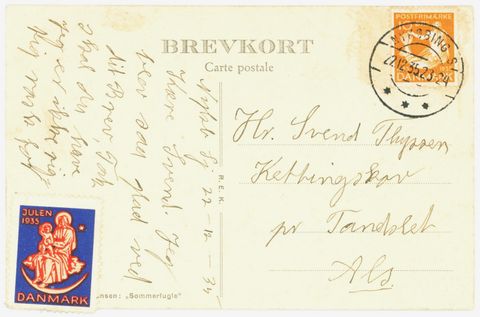 BREVKORT
Carte postale
POSTFRIMÆRKE
DANMARK
NYKØBING S
22.12.35.23-24
Hr. Svend Thyssen
Kettingskov
pr Tandslet
Als.
22 - 12 - 35
Kære Svend. Jeg
blev saa glad ved
dit Brev, Tak
skal du have
jeg er ikke rig
R.E.K.
JULEN
1935
DANMARK
nsen: „Sommerfugle"